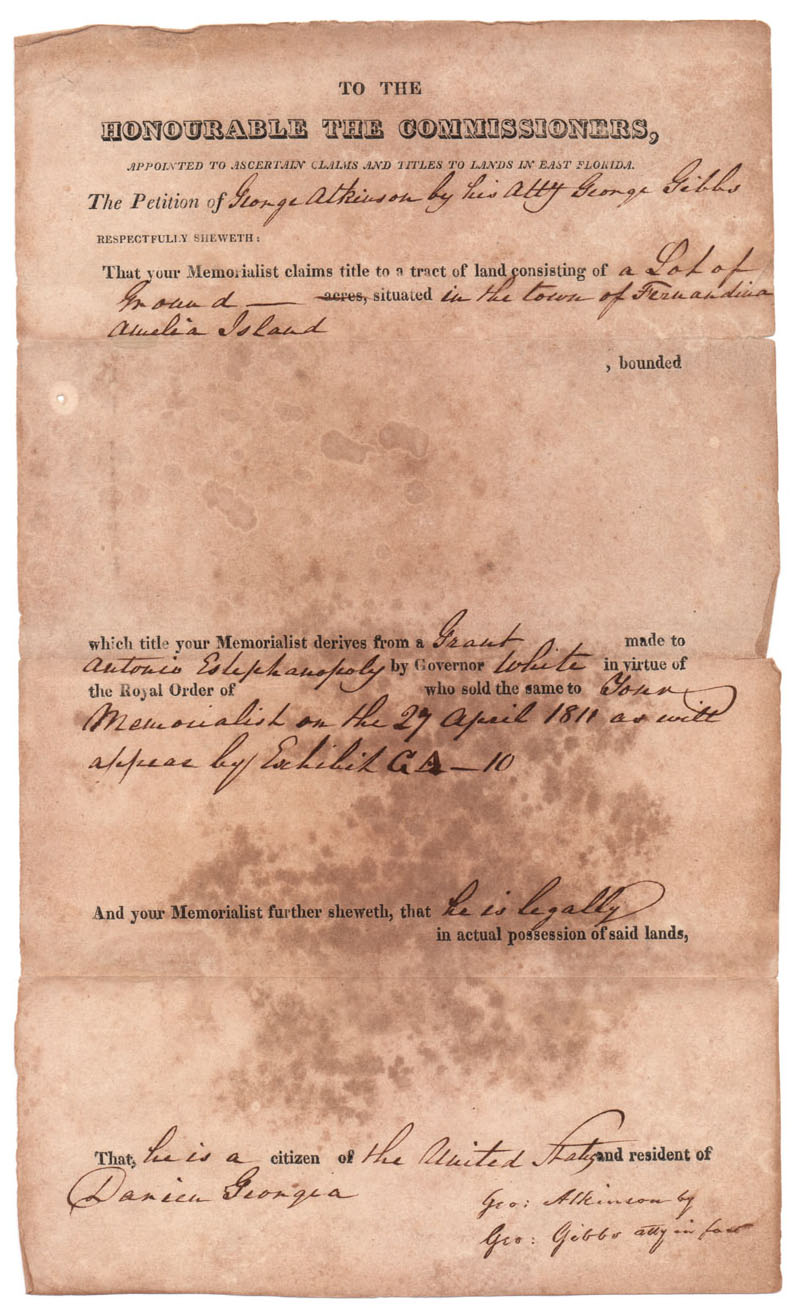 TO THE
HONOURABLE THE COMMISSIONERS,
APPOINTED TO ASCERTAIN CLAIMS AND TITLES TO LANDS IN EAST FLORIDA.
The Petition of George Atkinson by his Atty George Gibbs
RESPECTFULLY SHEWETH:
That your Memorialist claims title to a tract of land consisting of a Lot of
Ground — acres, situated in the town of Fernandina
Amelia Island
, bounded
which title your Memorialist derives from a Grant made to
Antonio Estephanopoly by Governor White in virtue of
the Royal Order of who sold the same to Your
Memorialist on the 27 April 1811 as will
appear by Exhibit G A – 10
And your Memorialist further sheweth, that he is legally
in actual possession of said lands,
That, he is a citizen of the United States and resident of
Darien Georgia
Geo: Atkinson by
Geo: Gibbs atty in fact